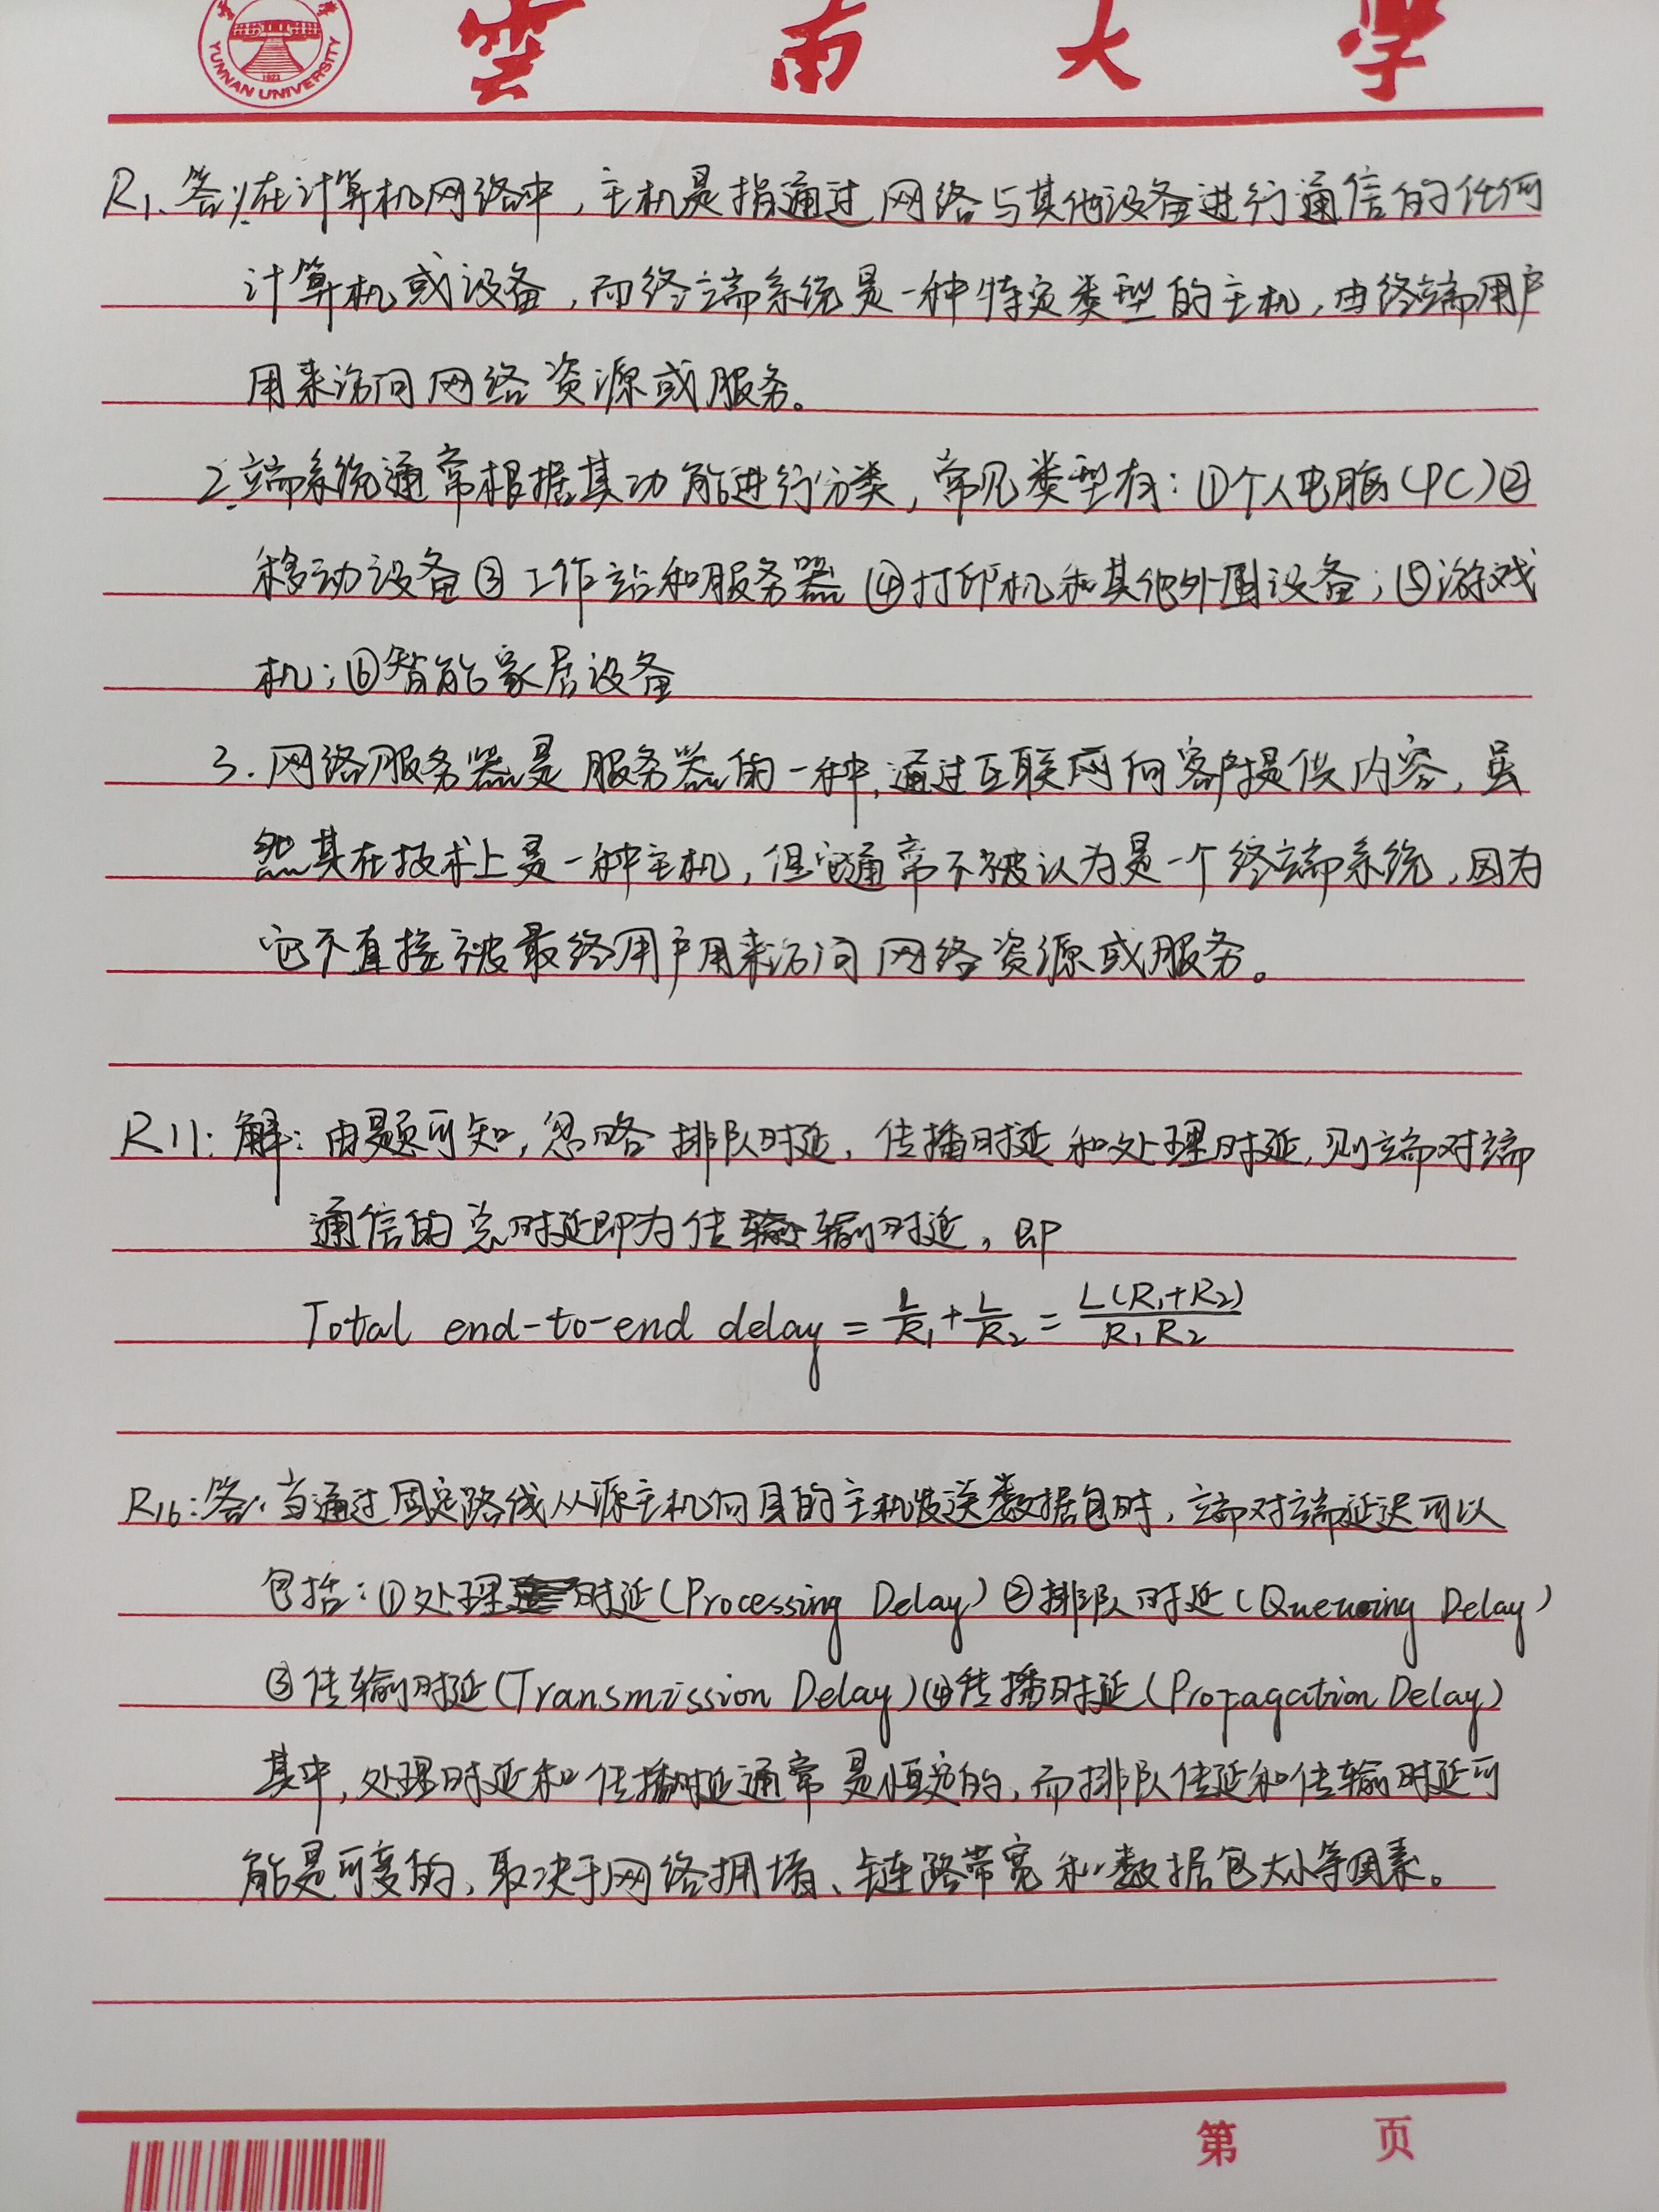 雲南大學
YUNNAN UNIVERSITY
1923
R1. 答:1.在计算机网络中,主机是指通过网络与其他设备进行通信的任何
计算机或设备,而终端系统是一种特定类型的主机,由终端用户
用来访问网络资源或服务。
2.端系统通常根据其功能进行分类,常见类型有:①个人电脑(PC)②
移动设备③工作站和服务器④打印机和其他外围设备;⑤游戏
机;⑥智能家居设备
3.网络服务器是服务器的一种,通过互联网向客户提供内容,虽
然其在技术上是一种主机,但它通常不被认为是一个终端系统,因为
它不直接被最终用户用来访问网络资源或服务。
R11:解:由题可知,忽略排队时延,传播时延和处理时延,则端对端
通信的总时延即为传输时延,即
Total end-to-end delay = L/R₁ + L/R₂ = L(R₁+R₂)/R₁R₂
R16:答:当通过固定路线从源主机向目的主机发送数据包时,端对端延迟可以
包括:①处理时延(Processing Delay)②排队时延(Queueing Delay)
③传输时延(Transmission Delay)④传播时延(Propagation Delay)
其中,处理时延和传播时延通常是恒定的,而排队传延和传输时延可
能是可变的,取决于网络拥堵、链路带宽和数据包大小等因素。
第 页